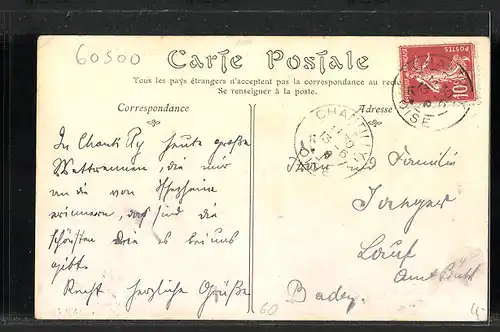 60500
Carte Postale
Tous les pays étrangers n'acceptent pas la correspondance au recto
Se renseigner à la poste.
Correspondance
Adresse
POSTES
10
CHANTILLY
OISE
In Chantilly heute große
Wettrennen, die mir
an die von
erinnern, daß sind die
schönsten die es bei uns
gibt.
Recht herzliche Grüße
und Familie
Lauf
Amt Bühl
Baden
60